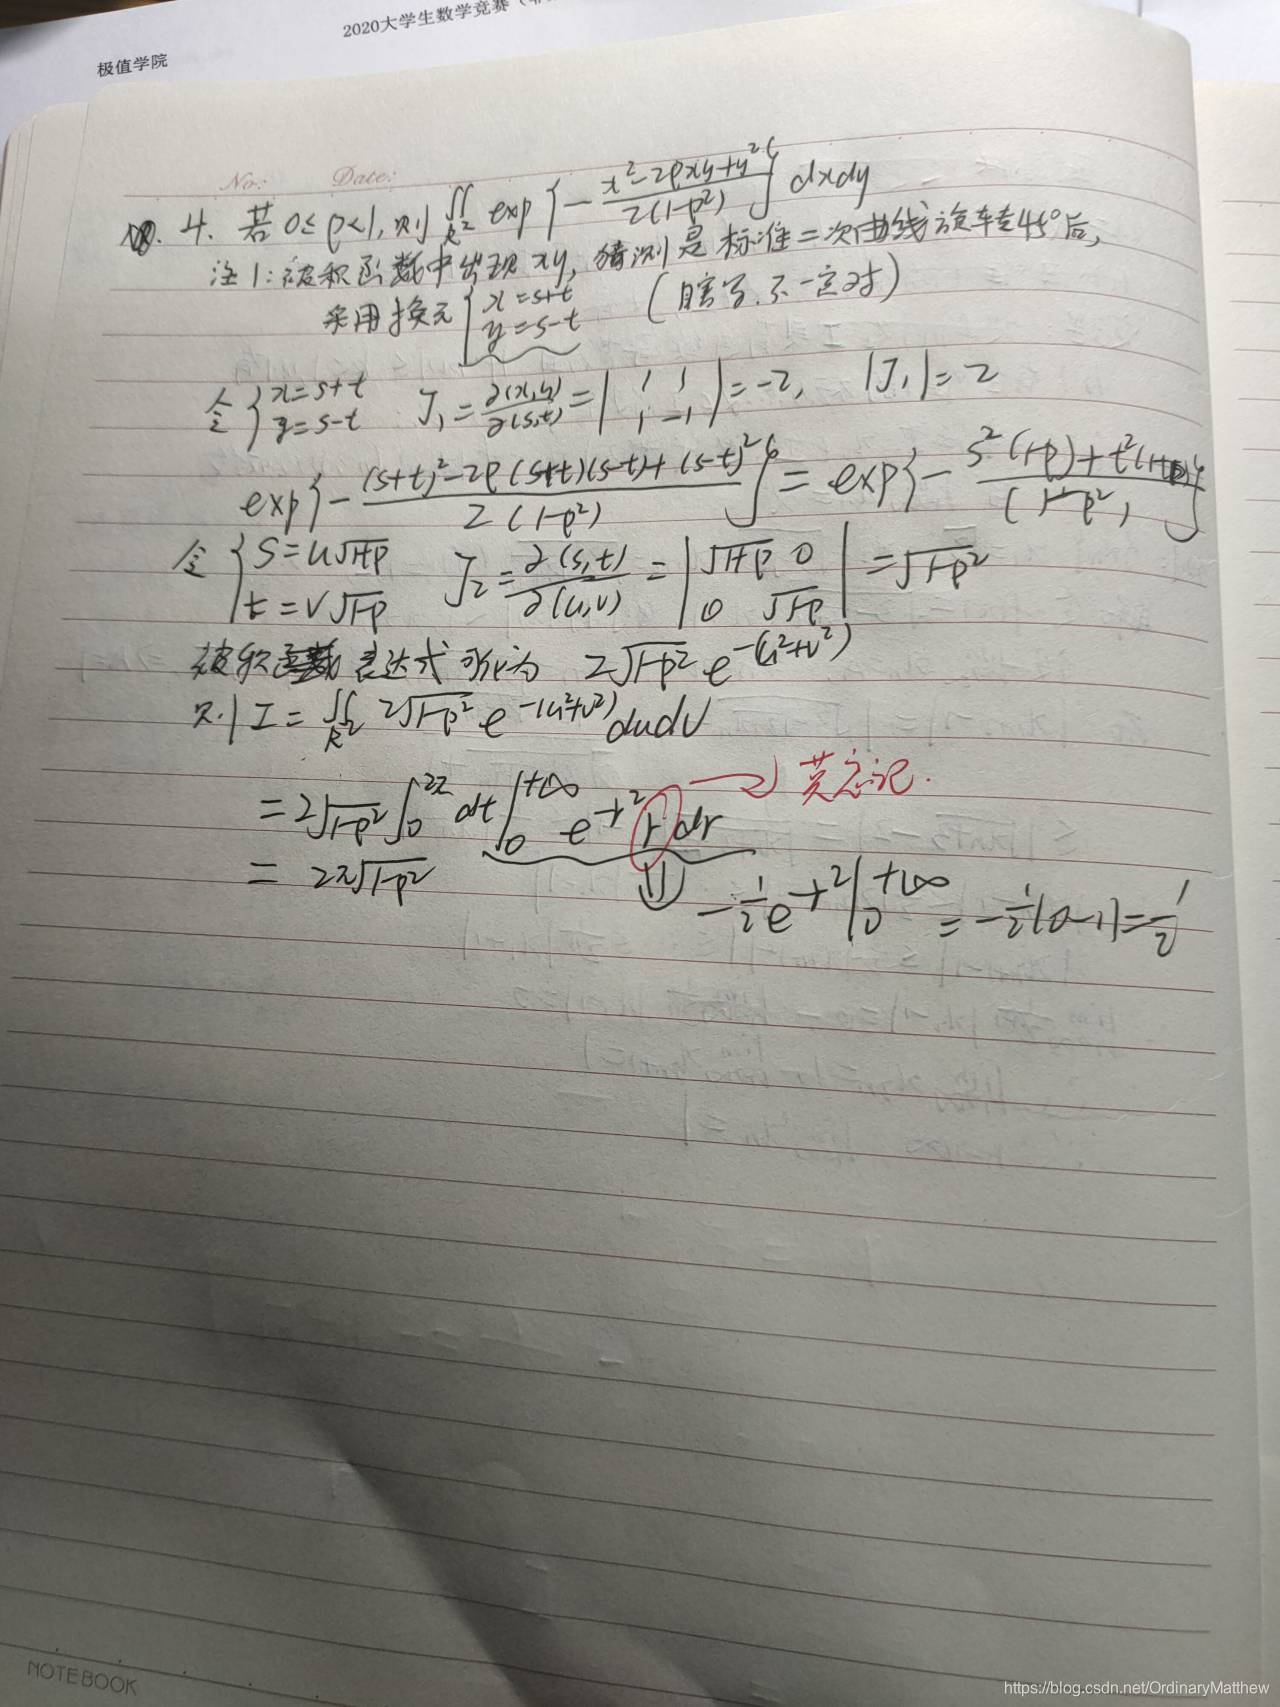 2020大学生数学竞赛(
极值学院
No.: Date:
4. 若 0≤ρ<1, 则 ∬_{R²} exp{-\frac{x²-2ρxy+y²}{2(1-ρ²)}} dxdy
注1: 被积函数中出现 xy, 猜测是标准二次曲线旋转45°后,
采用换元 { x=s+t y=s-t (瞎写,不一定对)
令 { x=s+t y=s-t J₁ = ∂(x,y)/∂(s,t) = | 1 1 1 -1 | = -2, |J₁| = 2
exp{-\frac{(s+t)²-2ρ(s+t)(s-t)+(s-t)²}{2(1-ρ²)}} = exp{-\frac{s²(1-ρ)+t²(1+ρ)}{(1-ρ²)}}
令 { s=u√1+ρ t=v√1-ρ J₂ = ∂(s,t)/∂(u,v) = | √1+ρ 0 0 √1-ρ | = √1-ρ²
被积函数表达式可化为 2√1-ρ² e^{-(u²+v²)}
则 I = ∬_{R²} 2√1-ρ² e^{-(u²+v²)} dudv
= 2√1-ρ² ∫₀^{2π} dt ∫₀^{+∞} e^{-r²} r dr → 莫忘记.
= 2π√1-ρ²
-½e^{-r²}|₀^{+∞} = -½(0-1) = ½
NOTEBOOK
https://blog.csdn.net/OrdinaryMatthew